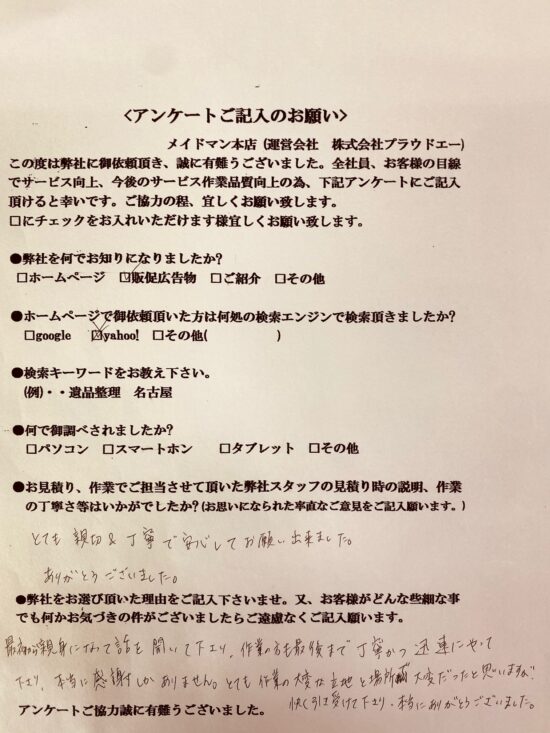 <アンケートご記入のお願い>
メイドマン本店 (運営会社 株式会社プラウドエー)
この度は弊社に御依頼頂き、誠に有難うございました。全社員、お客様の目線
でサービス向上、今後のサービス作業品質向上の為、下記アンケートにご記入
頂けると幸いです。ご協力の程、宜しくお願い致します。
□にチェックをお入れいただけます様宜しくお願い致します。
●弊社を何でお知りになりましたか?
□ホームページ ☑販促広告物 □ご紹介 □その他
●ホームページで御依頼頂いた方は何処の検索エンジンで検索頂きましたか?
□google ☑yahoo! □その他( )
●検索キーワードをお教え下さい。
(例)・・遺品整理 名古屋
●何で御調べされましたか?
□パソコン □スマートホン □タブレット □その他
●お見積り、作業でご担当させて頂いた弊社スタッフの見積り時の説明、作業
の丁寧さ等はいかがでしたか?(お思いになられた率直なご意見をご記入願います。)
とても 親切&丁寧で安心してお願い出来ました。
ありがとうございました。
●弊社をお選び頂いた理由をご記入下さいませ。又、お客様がどんな些細な事
でも何かお気づきの件がございましたらご遠慮なくご記入願います。
最初から親身になって話を聞いて下さり、作業の方も最後まで丁寧かつ迅速にやって
下さり、本当に感謝しかありません。とても作業の大変な立地と場所 大変だったと思いますが
快く引き受けて下さり、本当にありがとうございました。
アンケートご協力誠に有難うございました。